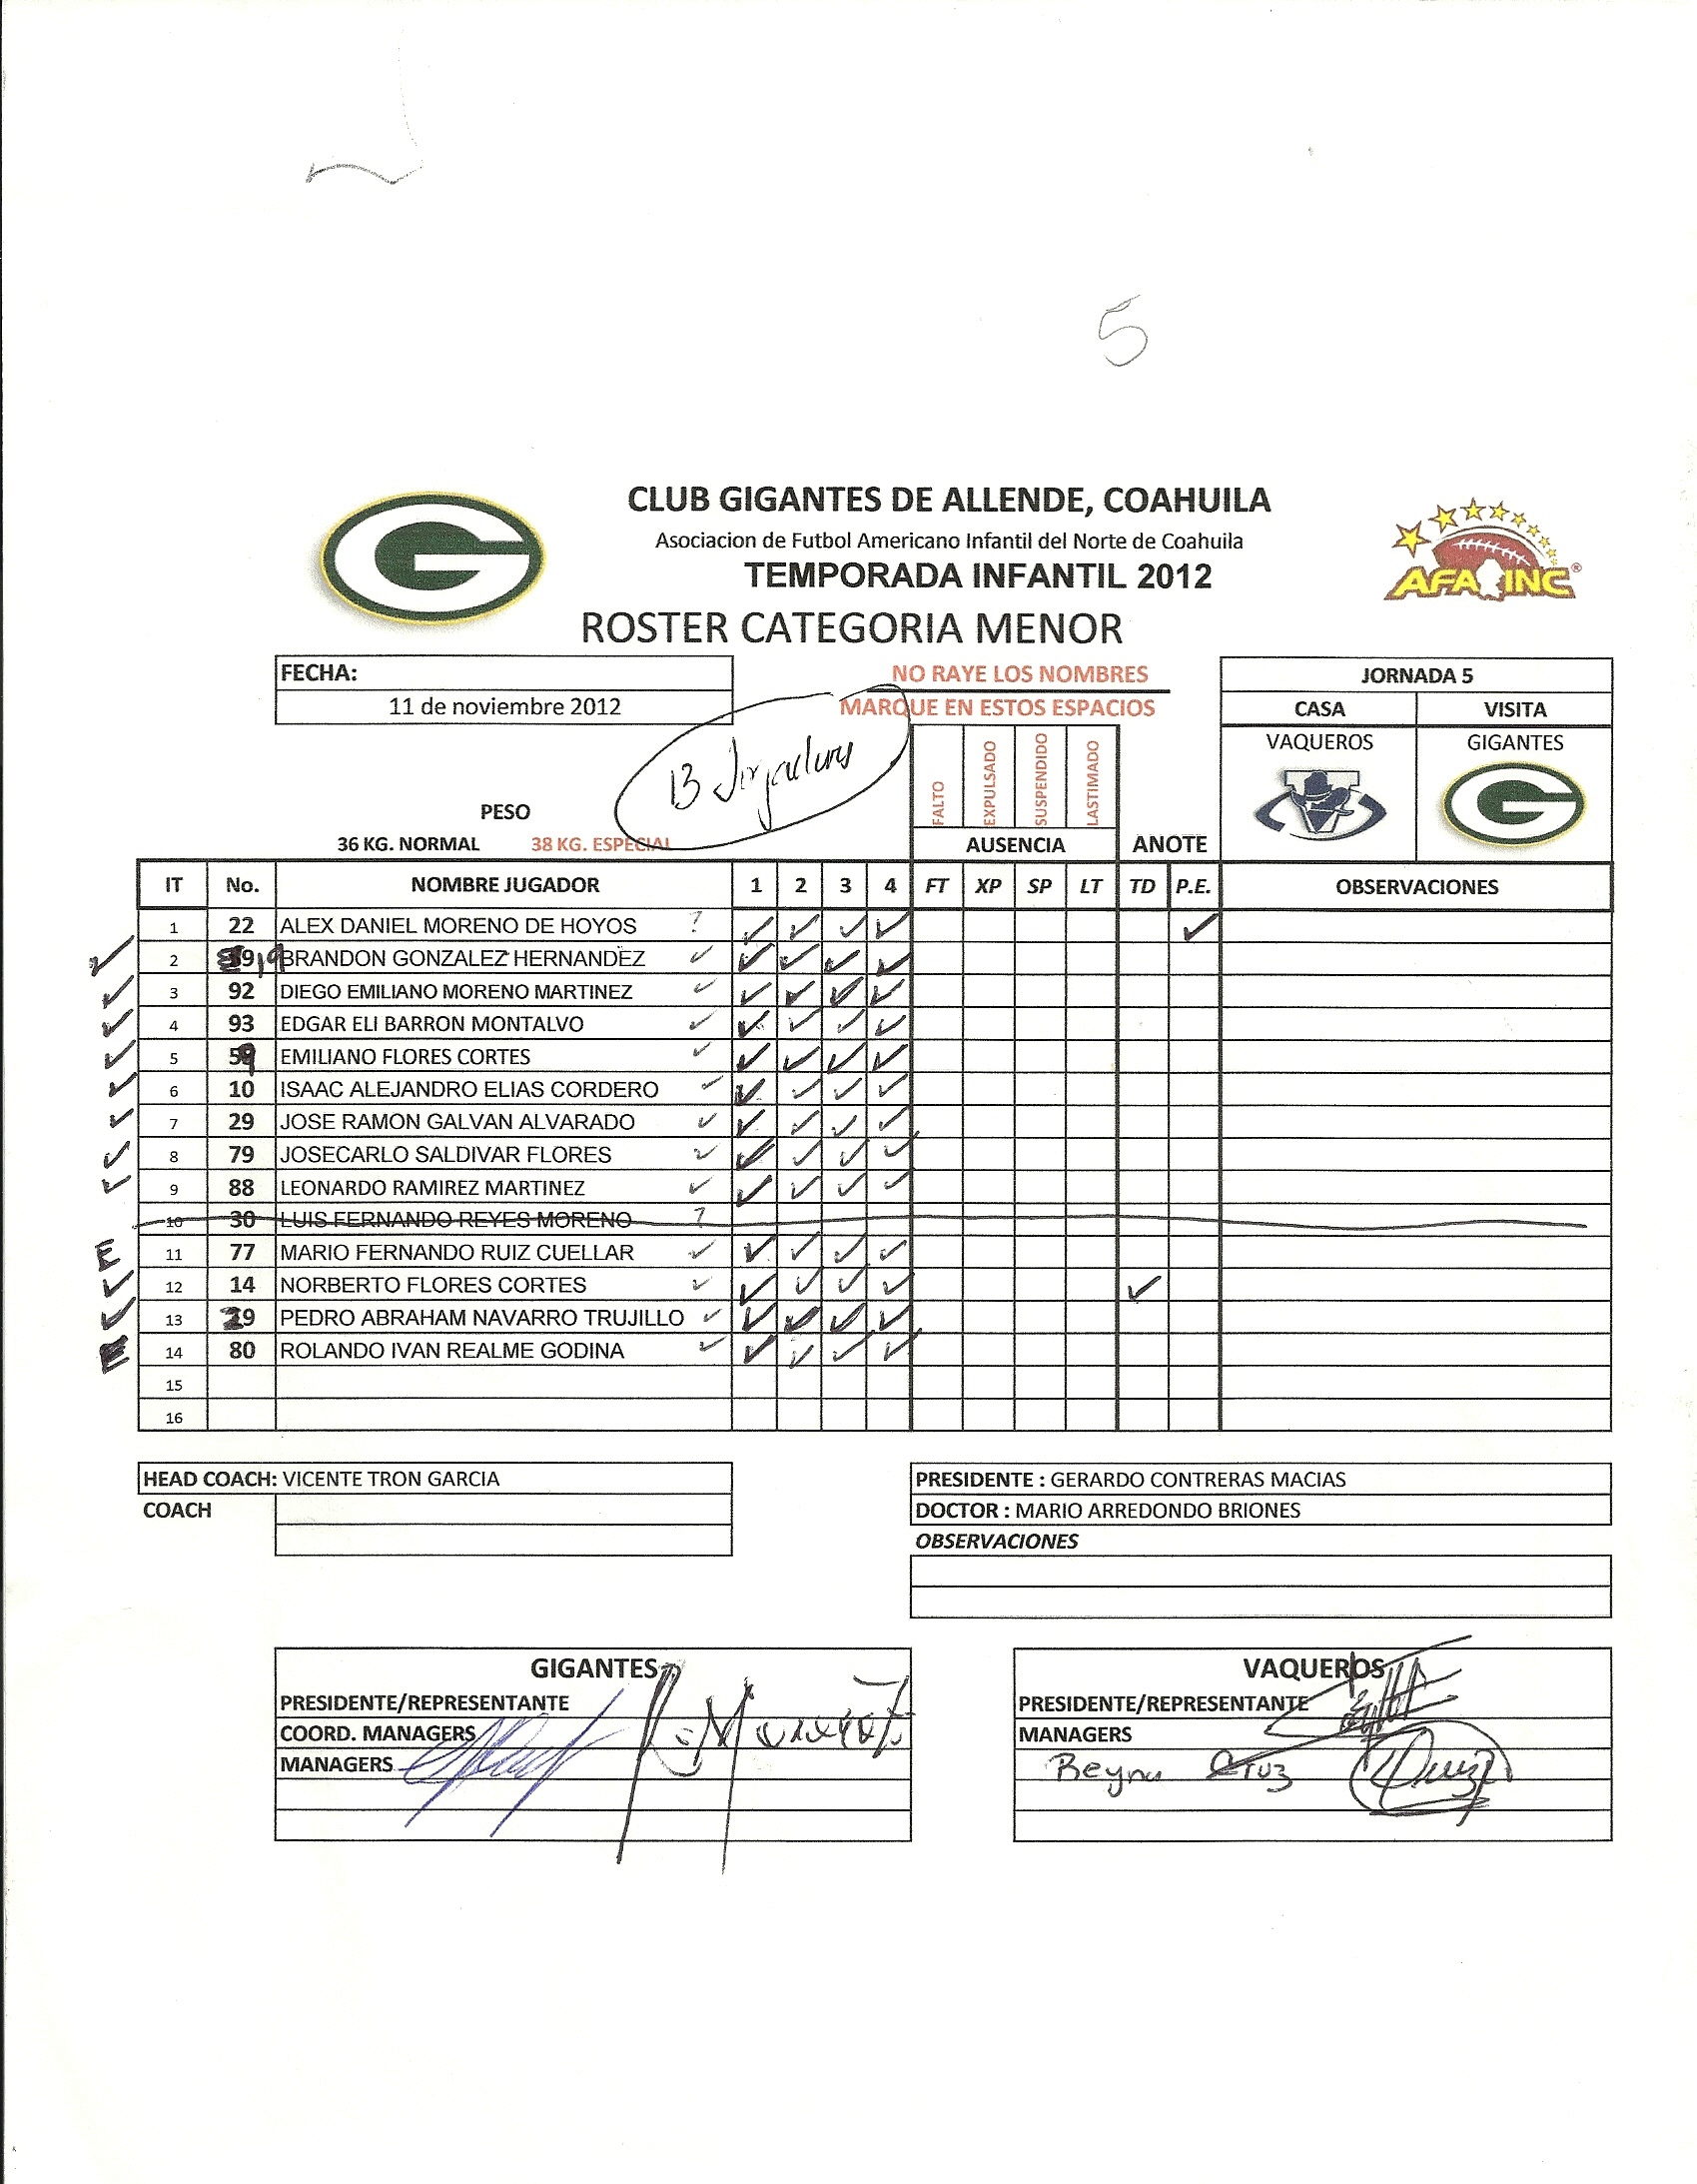 5
CLUB GIGANTES DE ALLENDE, COAHUILA
Asociacion de Futbol Americano Infantil del Norte de Coahuila
TEMPORADA INFANTIL 2012
AFA INC®
ROSTER CATEGORIA MENOR
FECHA:
11 de noviembre 2012
NO RAYE LOS NOMBRES
MARQUE EN ESTOS ESPACIOS
JORNADA 5
CASA VISITA
VAQUEROS GIGANTES
13 Jugadores
FALTO EXPULSADO SUSPENDIDO LASTIMADO
PESO
36 KG. NORMAL 38 KG. ESPECIAL
AUSENCIA ANOTE
IT No. NOMBRE JUGADOR 1 2 3 4 FT XP SP LT TD P.E. OBSERVACIONES
1 22 ALEX DANIEL MORENO DE HOYOS ? ✓ ✓ ✓ ✓ ✓
✓ 2 19 BRANDON GONZALEZ HERNANDEZ ✓ ✓ ✓ ✓ ✓
✓ 3 92 DIEGO EMILIANO MORENO MARTINEZ ✓ ✓ ✓ ✓ ✓
✓ 4 93 EDGAR ELI BARRON MONTALVO ✓ ✓ ✓ ✓ ✓
✓ 5 59 EMILIANO FLORES CORTES ✓ ✓ ✓ ✓ ✓
✓ 6 10 ISAAC ALEJANDRO ELIAS CORDERO ✓ ✓ ✓ ✓ ✓
✓ 7 29 JOSE RAMON GALVAN ALVARADO ✓ ✓ ✓ ✓ ✓
✓ 8 79 JOSECARLO SALDIVAR FLORES ✓ ✓ ✓ ✓ ✓
✓ 9 88 LEONARDO RAMIREZ MARTINEZ ✓ ✓ ✓ ✓ ✓
10 30 LUIS FERNANDO REYES MORENO ?
E 11 77 MARIO FERNANDO RUIZ CUELLAR ✓ ✓ ✓ ✓ ✓
✓ 12 14 NORBERTO FLORES CORTES ✓ ✓ ✓ ✓ ✓ ✓
✓ 13 39 PEDRO ABRAHAM NAVARRO TRUJILLO ✓ ✓ ✓ ✓ ✓
E 14 80 ROLANDO IVAN REALME GODINA ✓ ✓ ✓ ✓ ✓
15
16
HEAD COACH: VICENTE TRON GARCIA
COACH
PRESIDENTE : GERARDO CONTRERAS MACIAS
DOCTOR : MARIO ARREDONDO BRIONES
OBSERVACIONES
GIGANTES
PRESIDENTE/REPRESENTANTE
COORD. MANAGERS
MANAGERS
VAQUEROS
PRESIDENTE/REPRESENTANTE
MANAGERS
Reyna Cruz